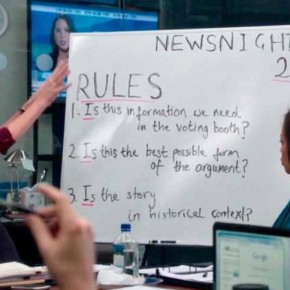 NEWSNIGHT
2
RULES
1. Is this information we need
in the voting booth?
2. Is this the best possible form
of the argument?
3. Is the story
in historical context?
Google